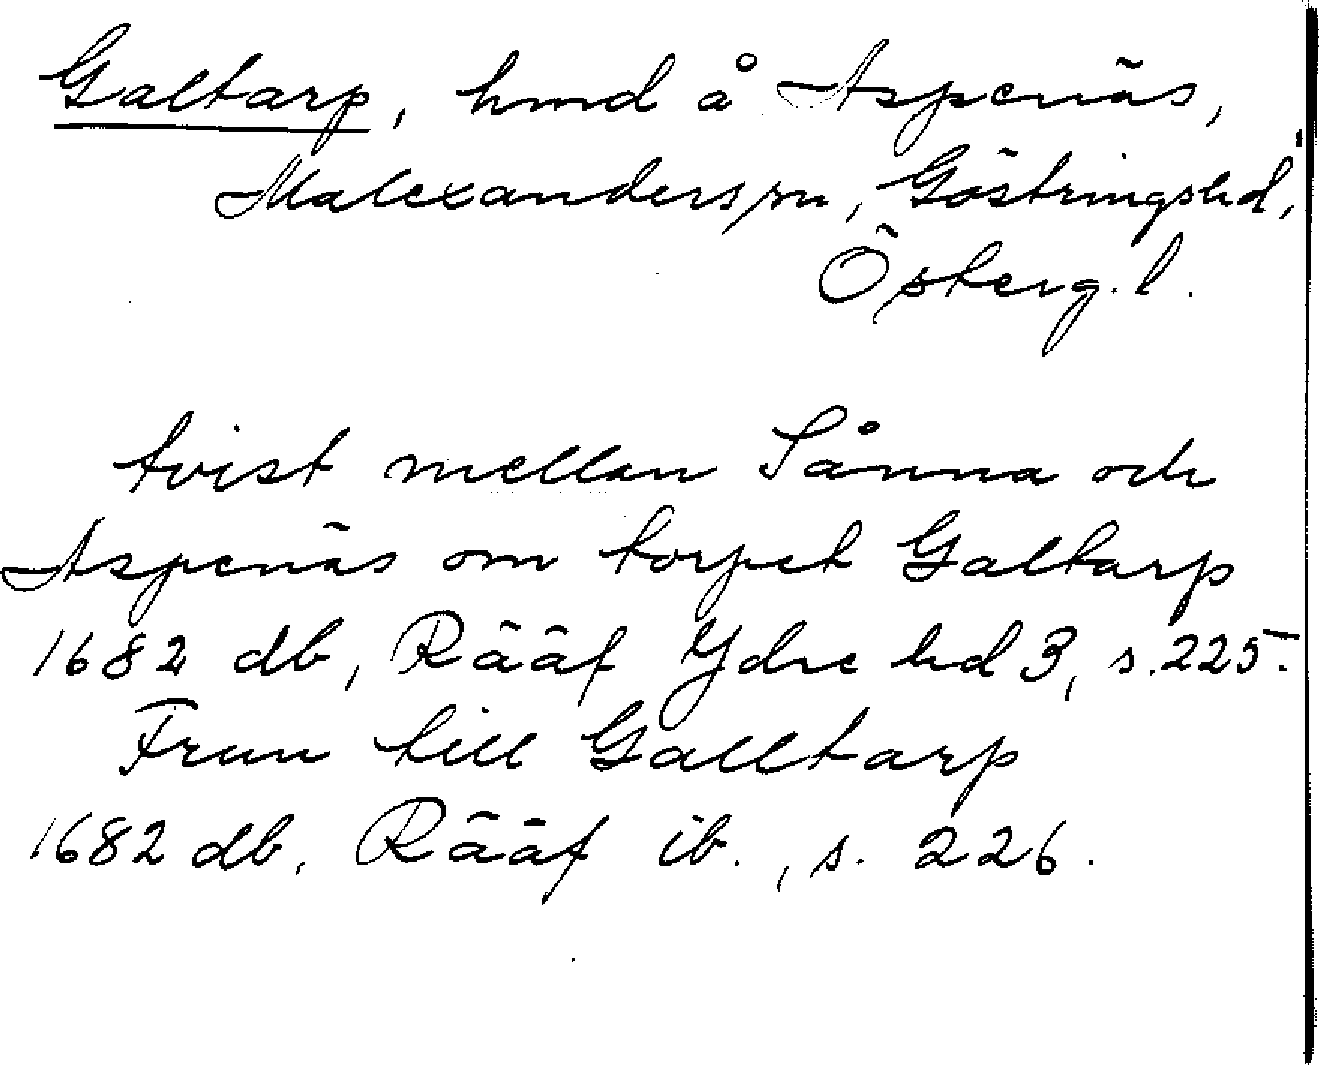 Galtarp, hmd å Aspenäs,
Malexanders sn, Göstringshd,
Österg.l.
tvist mellan Sånna och
Aspenäs om torpet Galtarp
1682 db, Rääf Ydre hd 3, s.225.
Frun till Galltarp
1682 db, Rääf ib., s. 226.